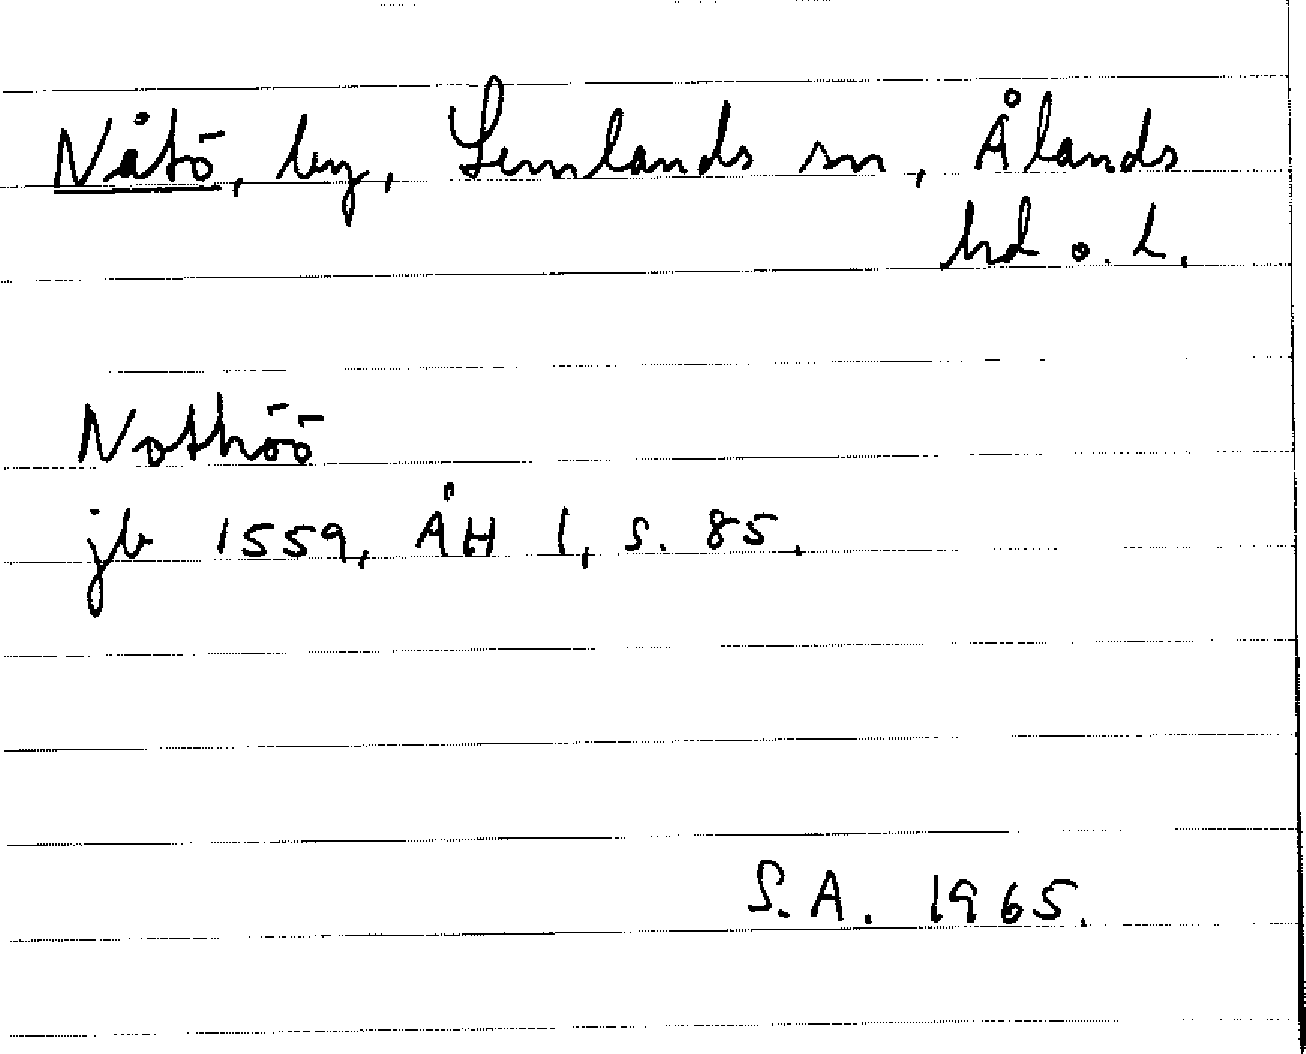 Nåtö, by, Lemlands sn, Ålands
hd o. L.
Nothöö
jb 1559, ÅH 1, s. 85.
S.A. 1965.